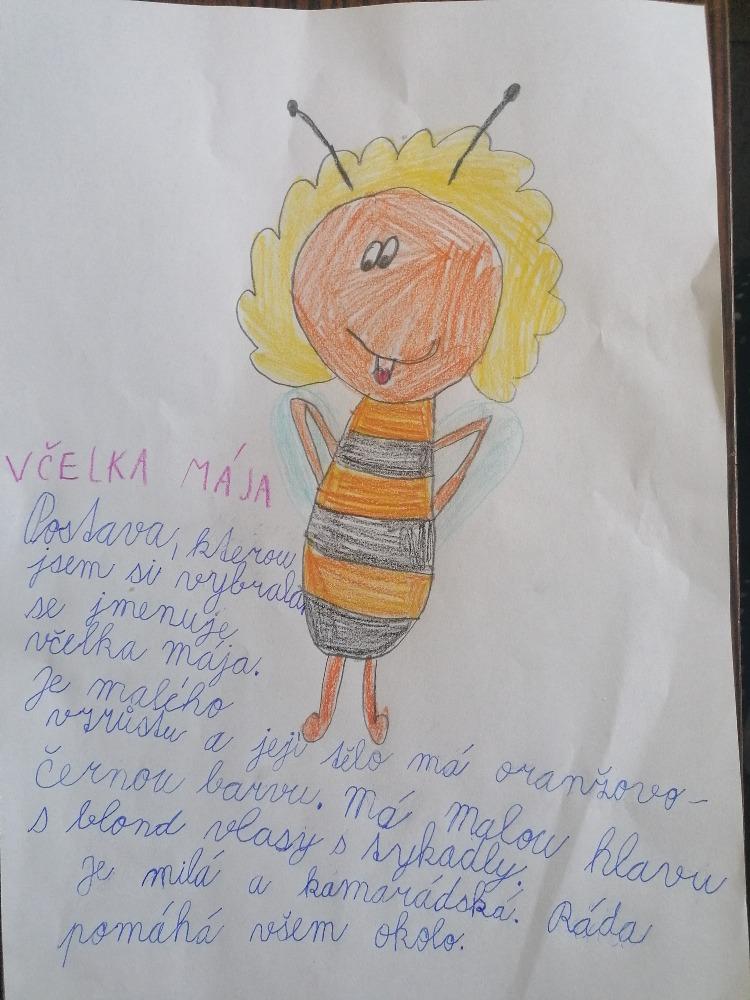 VČELKA MÁJA
Postava, kterou
jsem si vybrala
se jmenuje
včelka mája.
Je malého
vzrůstu a její tělo má oranžovo-
černou barvu. Má malou hlavu
s blond vlasy s tykadly.
Je milá a kamarádská. Ráda
pomáhá všem okolo.